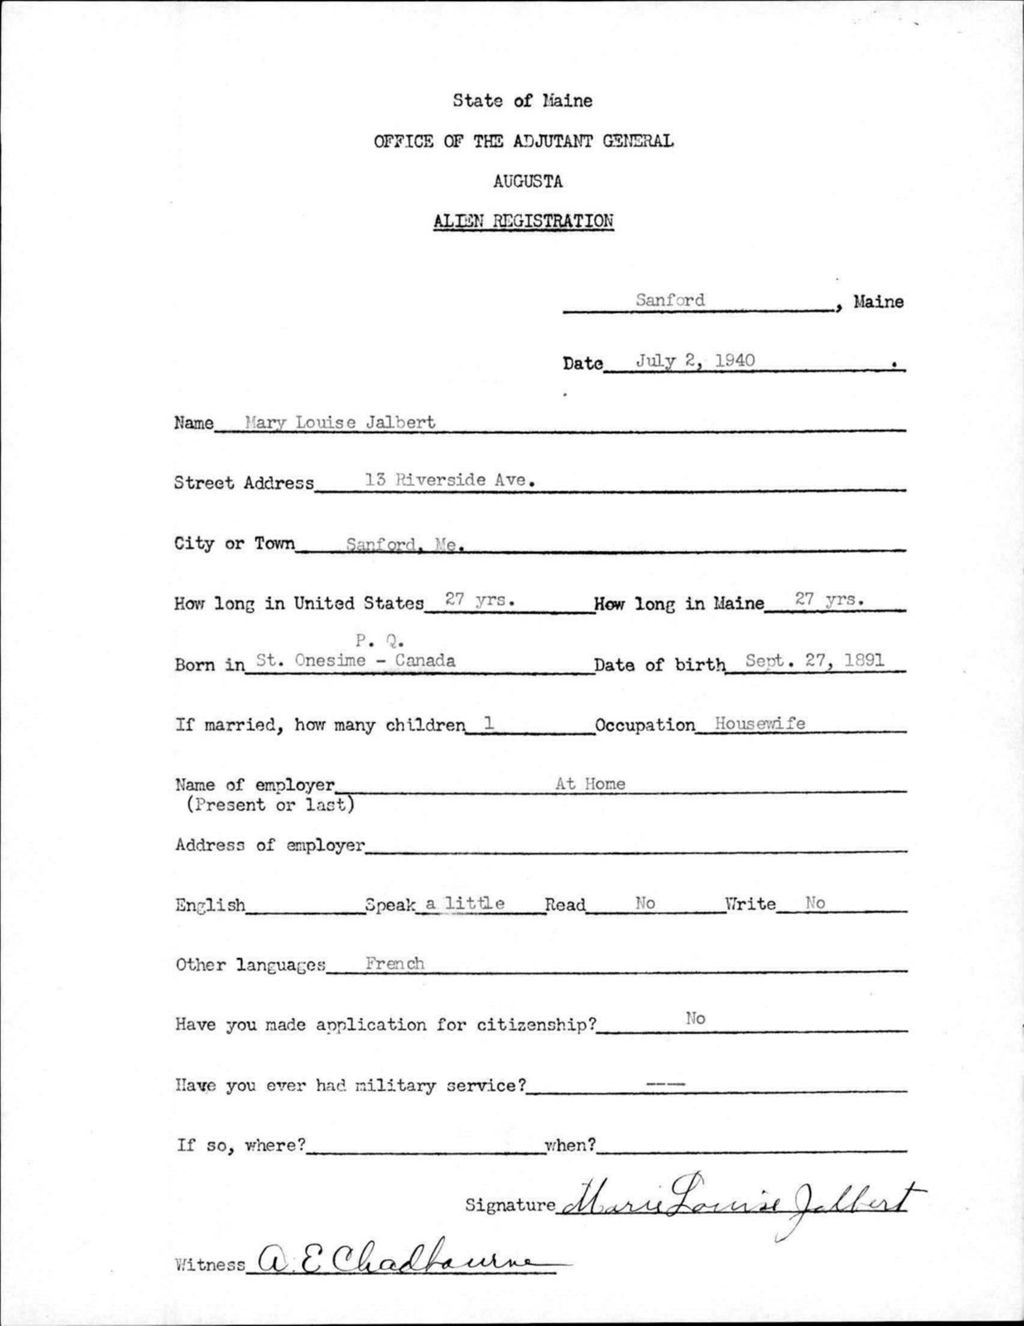 State of Maine
OFFICE OF THE ADJUTANT GENERAL
AUGUSTA
ALIEN REGISTRATION
Sanford, Maine
Date July 2, 1940.
Name Mary Louise Jalbert
Street Address 13 Riverside Ave.
City or Town Sanford, Me.
How long in United States 27 yrs. How long in Maine 27 yrs.
P. Q.
Born in St. Onesime - Canada Date of birth Sept. 27, 1891
If married, how many children 1 Occupation Housewife
Name of employer At Home
(Present or last)
Address of employer
English Speak a little Read No Write No
Other languages French
Have you made application for citizenship? No
Have you ever had military service? ---
If so, where? when?
Signature Marie Louise Jalbert
Witness A. E Chadbourne